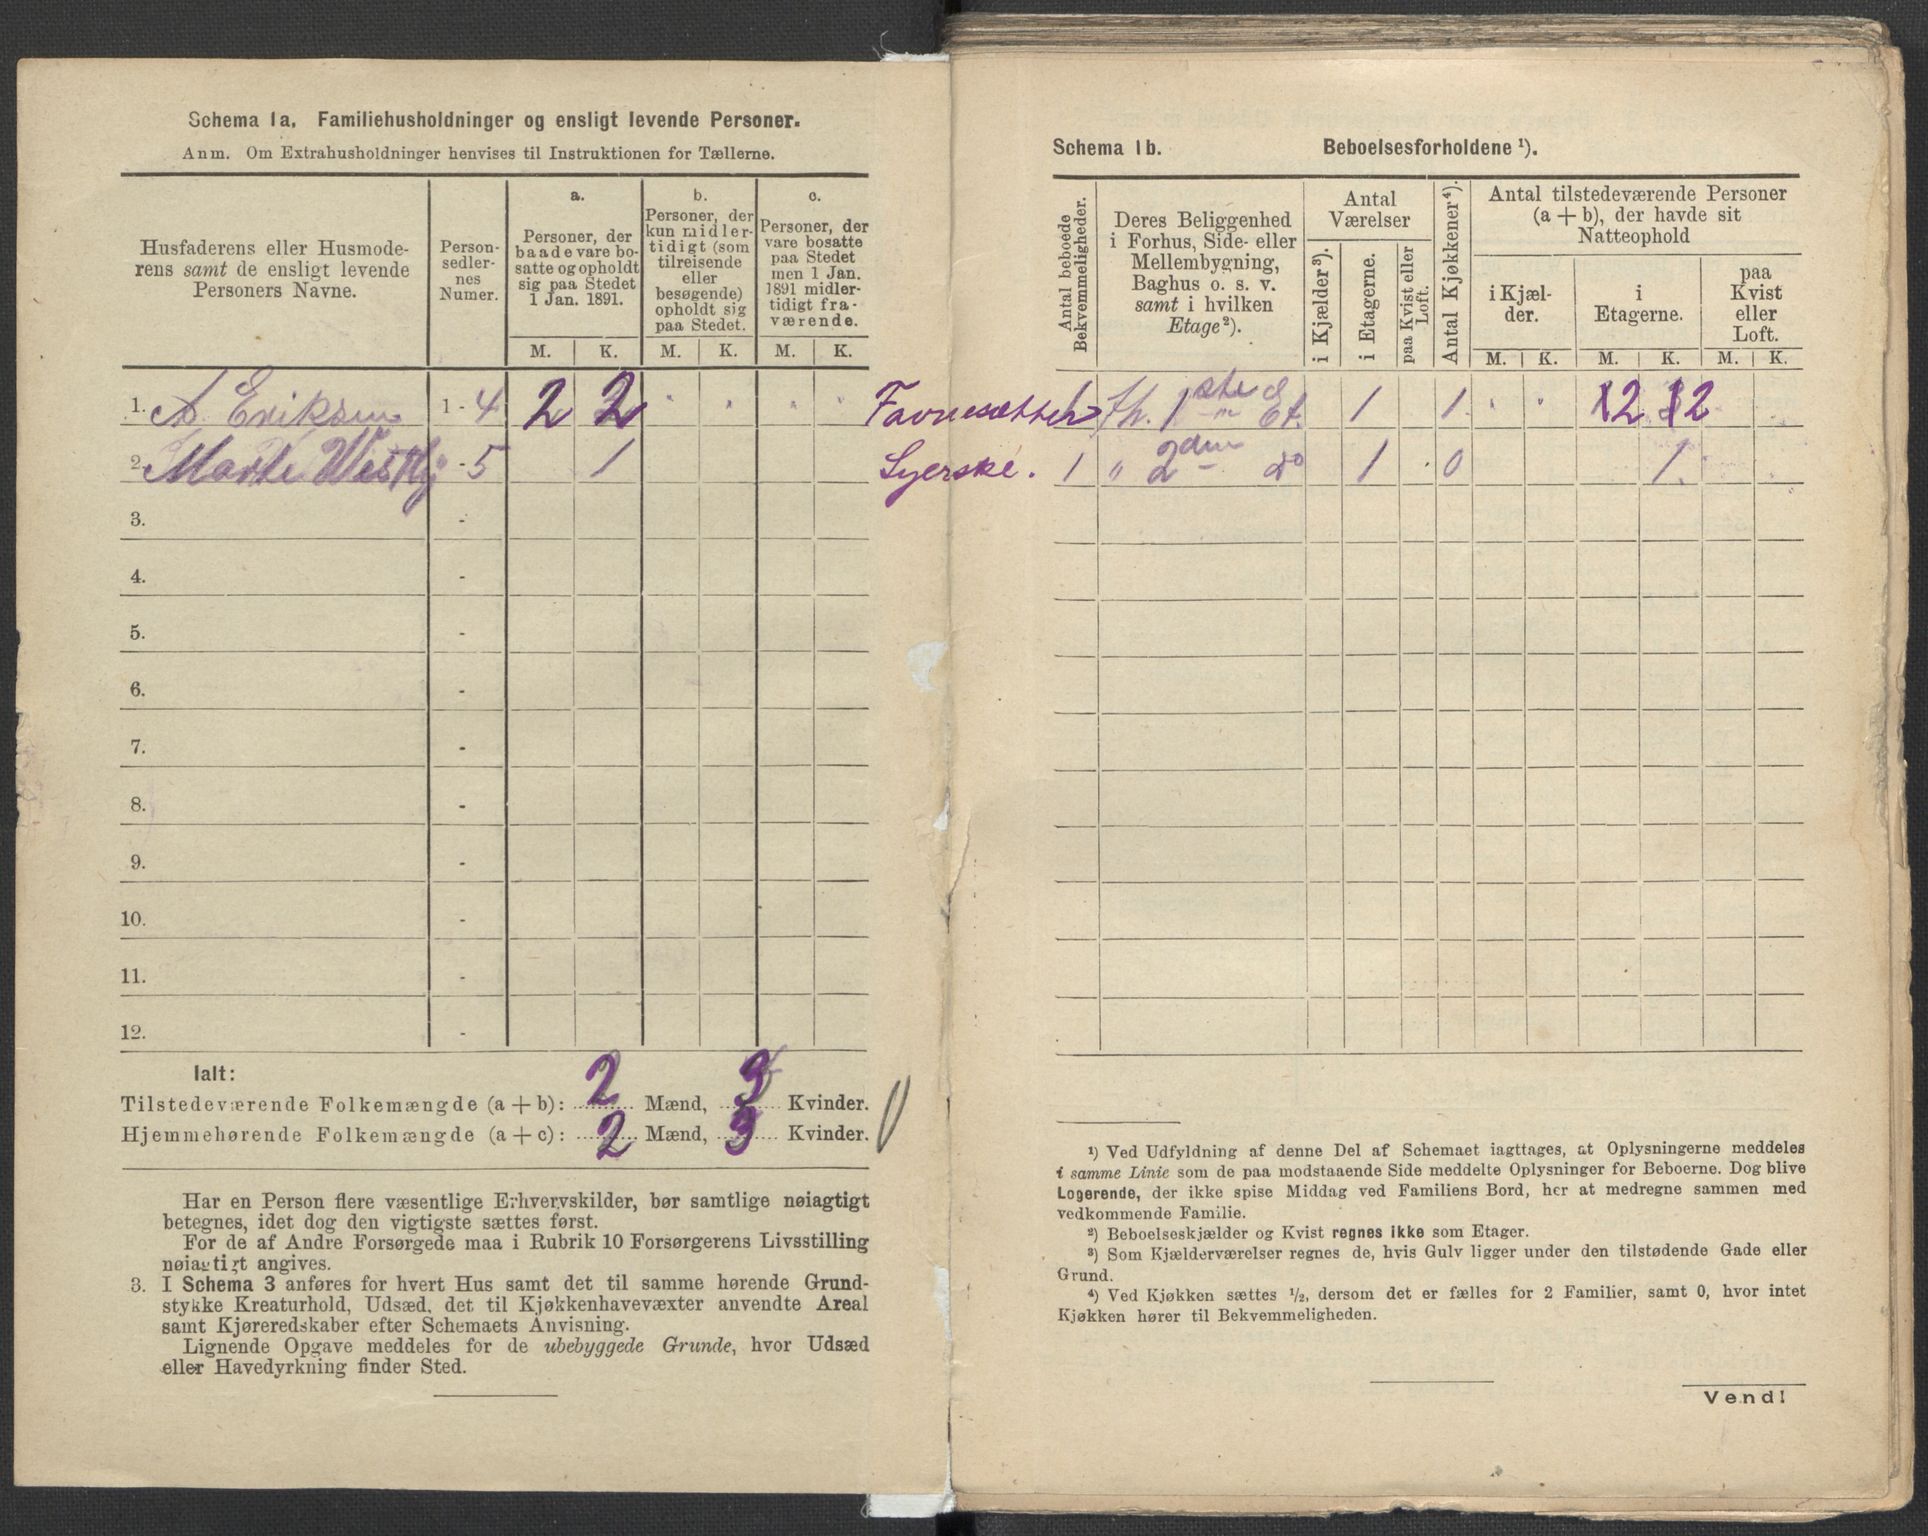 Schema 1a. Familiehusholdninger og ensligt levende Personer.
Anm. Om Extrahusholdninger henvises til Instruktionen for Tællerne.
Husfaderens eller Husmode-
rens samt de ensligt levende
Personers Navne.
Person-
sedler-
nes
Numer.
a.
Personer, der
baade vare bo-
satte og opholdt
sig paa Stedet
1 Jan. 1891.
b.
Personer, der
kun midler-
tidigt (som
tilreisende
eller
besøgende)
opholdt sig
paa Stedet.
c.
Personer, der
vare bosatte
paa Stedet
men 1 Jan.
1891 midler-
tidigt fra-
værende.
M. K. M. K. M. K.
1. A. Eriksen 1 - 4 2 2 " " " "
2. Marte Westby - 5 1
3. -
4. -
5. -
6. -
7. -
8. -
9. -
10. -
11. -
12. -
Ialt:
Tilstedeværende Folkemængde (a + b): 2 Mænd, 3 Kvinder.
Hjemmehørende Folkemængde (a + c): 2 Mænd, 3 Kvinder.
Har en Person flere væsentlige Erhvervskilder, bør samtlige nøiagtigt
betegnes, idet dog den vigtigste sættes først.
For de af Andre Forsørgede maa i Rubrik 10 Forsørgerens Livsstilling
nøiagtigt angives.
3. I Schema 3 anføres for hvert Hus samt det til samme hørende Grund-
stykke Kreaturhold, Udsæd, det til Kjøkkenhavevæxter anvendte Areal
samt Kjøreredskaber efter Schemaets Anvisning.
Lignende Opgave meddeles for de ubebyggede Grunde, hvor Udsæd
eller Havedyrkning finder Sted.
Schema 1b. Beboelsesforholdene ¹).
Antal beboede
Bekvemmeligheder.
Deres Beliggenhed
i Forhus, Side- eller
Mellembygning,
Baghus o. s. v.
samt i hvilken
Etage²).
Antal
Værelser
i Kjælder³).
i Etagerne.
paa Kvist eller
Loft.
Antal Kjøkkener⁴).
Antal tilstedeværende Personer
(a + b), der havde sit
Natteophold
i Kjæl-
der.
i
Etagerne.
paa
Kvist
eller
Loft.
M. K. M. K. M. K.
Favnesætter 1 Fh. 1ste Et. 1 1 " " 2 2
Syerske. 1 " 2den do 1 0 1.
¹) Ved Udfyldning af denne Del af Schemaet iagttages, at Oplysningerne meddeles
i samme Linie som de paa modstaaende Side meddelte Oplysninger for Beboerne. Dog blive
Logerende, der ikke spise Middag ved Familiens Bord, her at medregne sammen med
vedkommende Familie.
²) Beboelseskjælder og Kvist regnes ikke som Etager.
³) Som Kjælderværelser regnes de, hvis Gulv ligger under den tilstødende Gade eller
Grund.
⁴) Ved Kjøkken sættes ½, dersom det er fælles for 2 Familier, samt 0, hvor intet
Kjøkken hører til Bekvemmeligheden.
Vend!